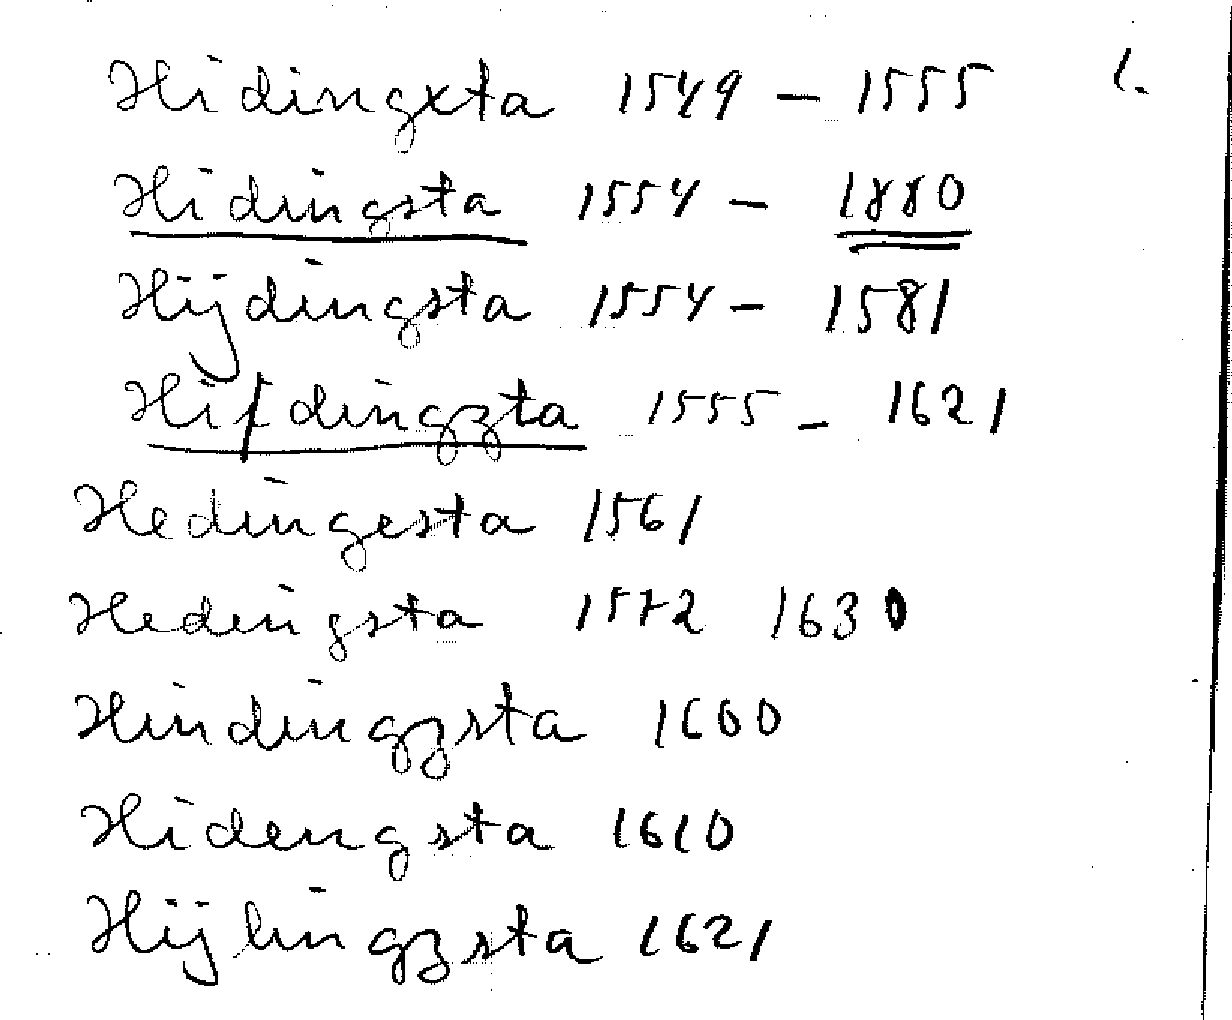 Hidingxta 1549 – 1555 1.
Hidingsta 1554 – 1880
Hijdingsta 1554 – 1581
1555 – 1621
Hedingesta 1561
Hedingsta 1572 1630
Hindingzsta 1600
Hidengsta 1610
Hijlingzsta 1621